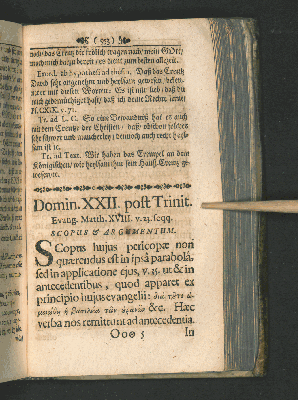 (953)
noch das Creutz dir frölich tragen nach/ mein GOtt/
mach mich darzu bereit/ es dient zum besten allezeit.
Exord. ab hypothesi ad thesin. Daß das Creutz
David sehr angenehm und heylsam gewesen,
mit diesen Worten: Es ist mir lieb/ daß du
mich gedemüthiget hast/ daß ich deine Rechte lerne/
Ps. CXIX. v. 71.
Tr. ad L. C. So eine Bewandtniß hat es auch
mit dem Creutze der Christen/ daß obschon solches
sehr schwer und mancherley/ dennoch auch recht heyl-
sam ist ꝛc.
Tr. ad Text. Wir haben das Exempel an dem
Königischen/ wie heylsam ihm sein Hauß-Creutz ge-
wesen/ ꝛc.
Domin. XXII. post Trinit.
Evang. Matth. XVIII. v. 23. seqq.
SCOPUS & ARGUMENTUM.
SCopus hujus pericopæ non
quærendus est in ipsâ parabolâ,
sed in applicatione ejus, v. 35. ut & in
antecedentibus, quod apparet ex
principio hujus evangelii: διὰ τᾶτο ὡ-
μοιώθη ἡ βασιλεία τῶν ἐρανῶν &c. Hæc
verba nos remittunt ad antecedentia.
Ooo 5 In